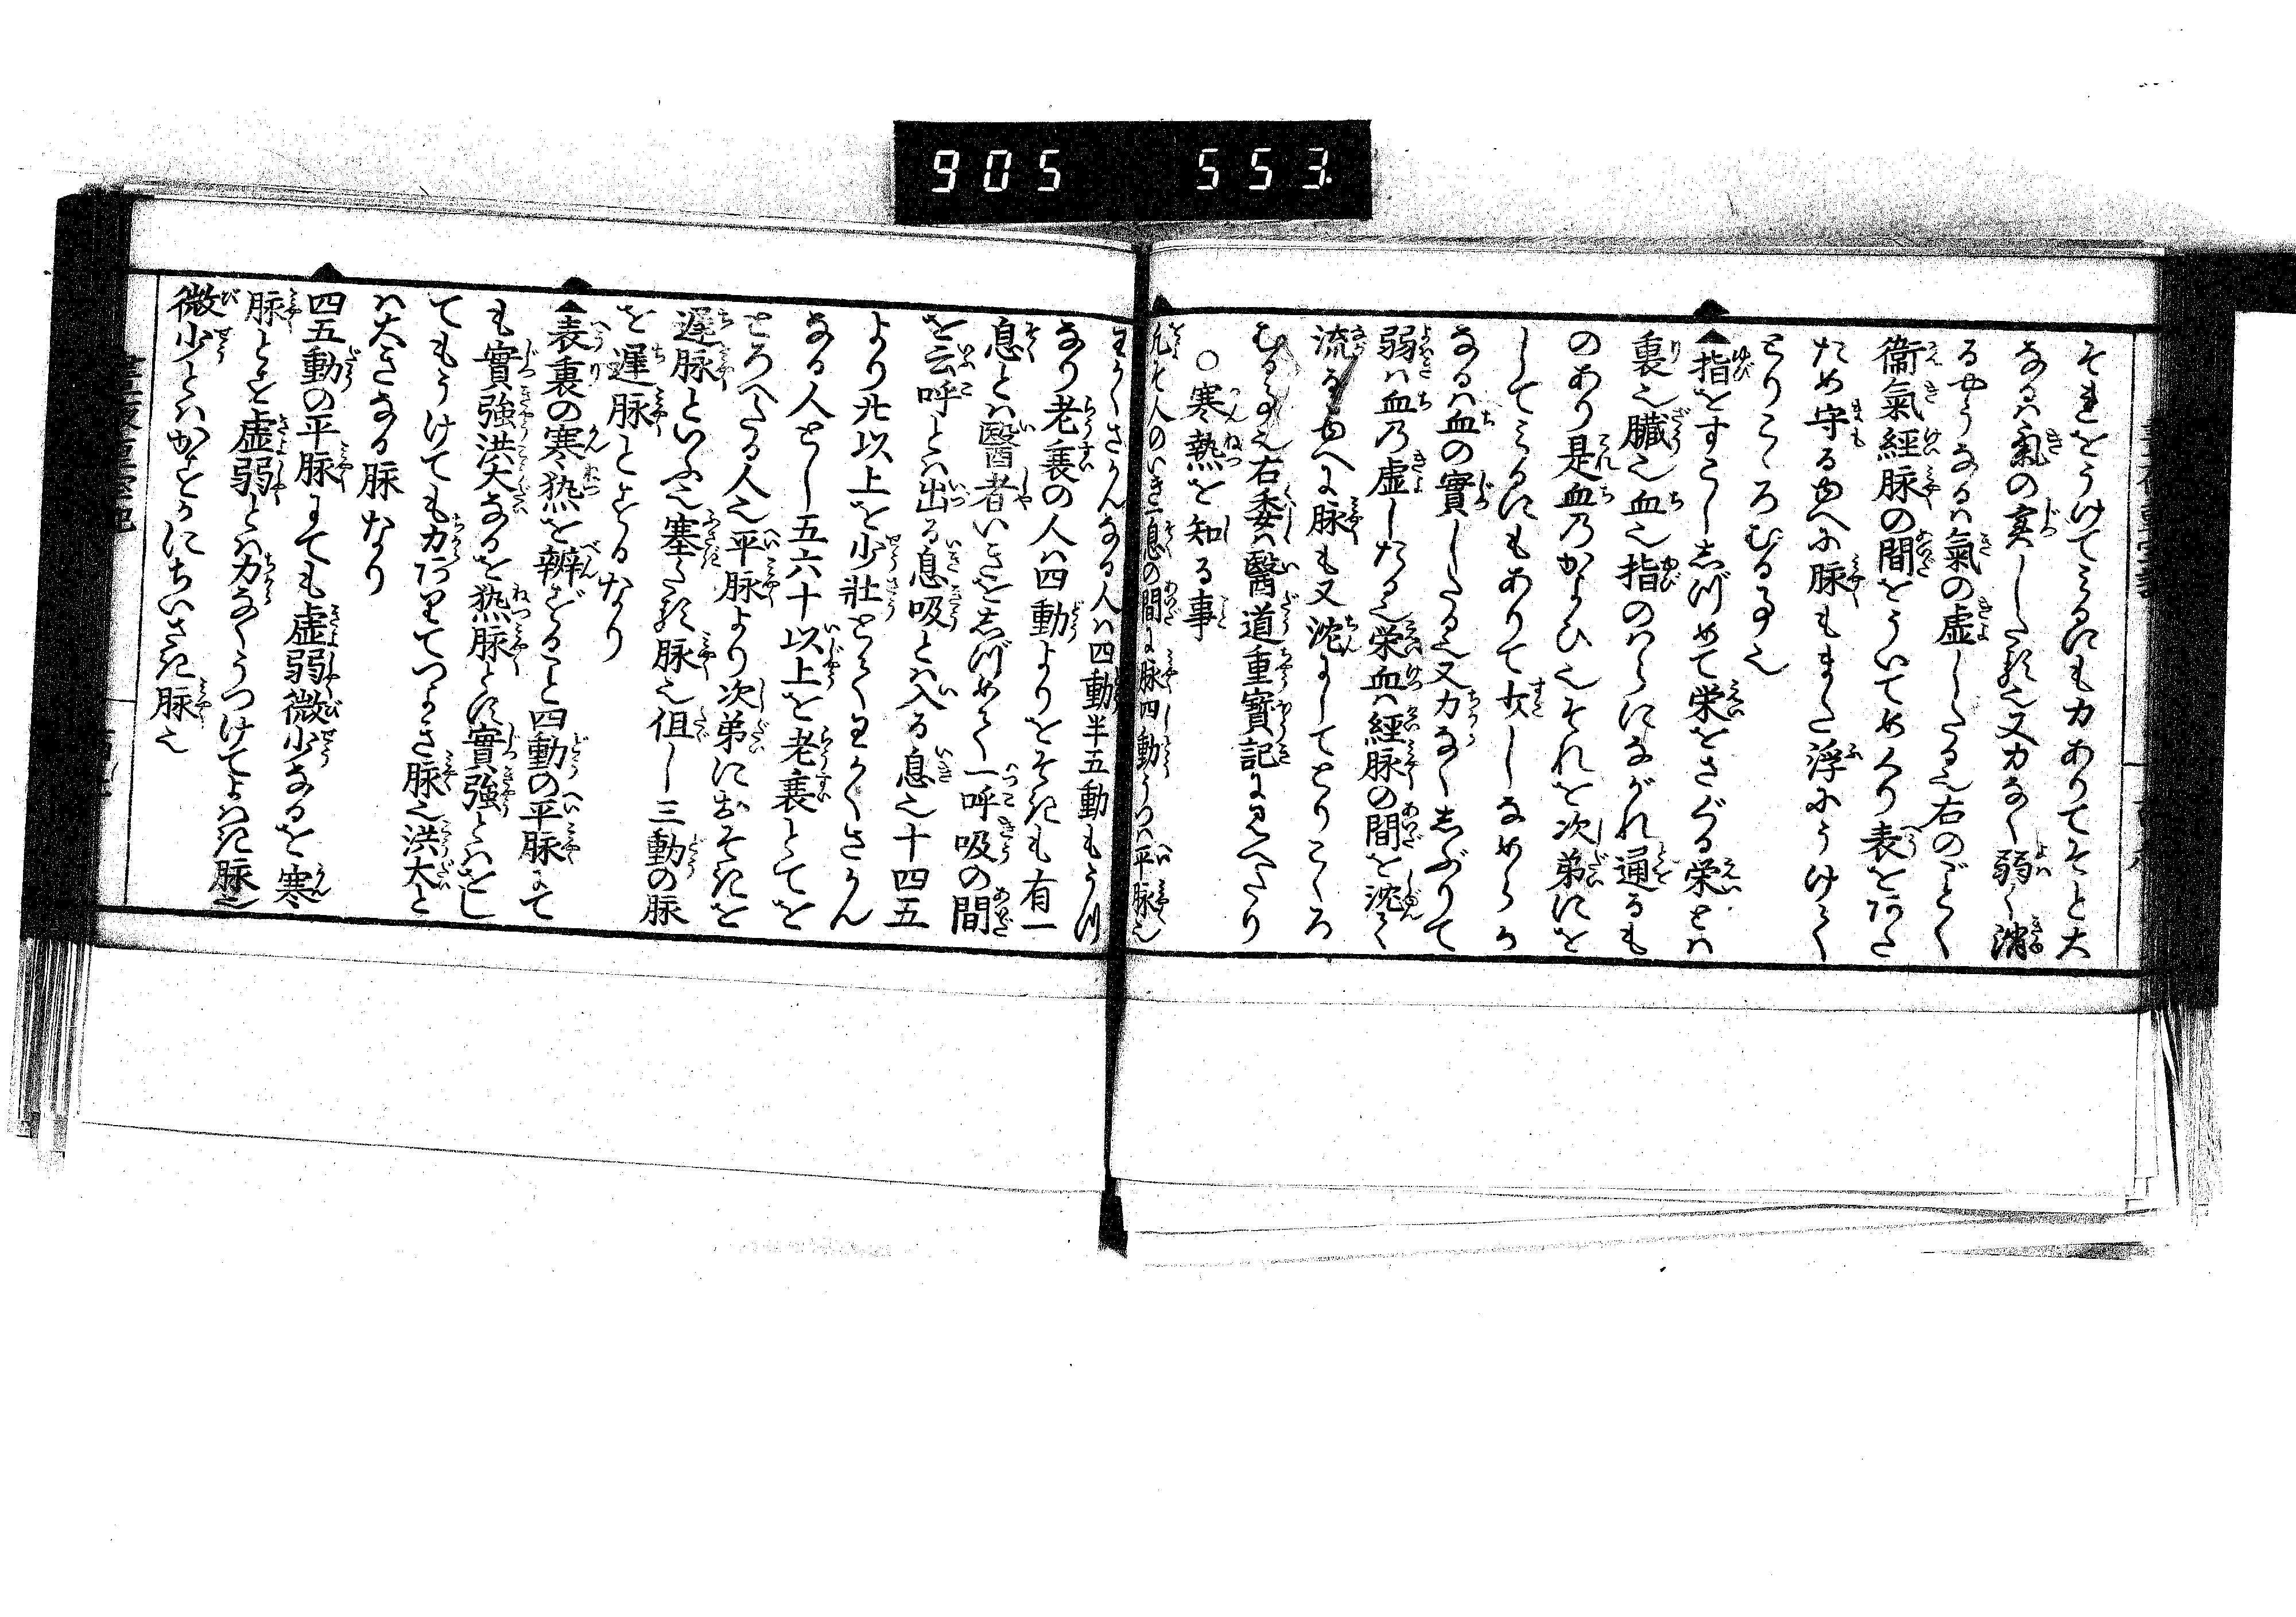 905 553
それをうけてみるにも力ありてそと大
なるハ氣の実したる也又力なく弱く消
るやうなるハ氣の虚したる也右のごとく
衞氣經脉の間をういてめくり表をあた
ため守るゆへに脉もまた浮にうけてく
とりこゝろむる事也
▲指をすこししづめて栄をさぐる栄とハ
裏也臓也血也指のハらにながれ通るも
のあり是血のかよひ也それを次第にを
してみるにもありて大しなめらか
なるハ血の實したる也又力なくしぶりて
弱ハ血の虚したる也栄血ハ經脉の間を沈て
流るゆへに脉も又沈にしてとりこゝろ
むる事也右委ハ醫道重寶記に見へたり
○寒熱を知る事
凡そ人のいき一息の間に脉四動うつハ平脉也
わかくさかんなる人ハ四動半五動もうつ
なり老衰の人ハ四動よりをそきも有一
息とハ醫者いきをしづめて一呼吸の間
を云呼とハ出る息吸とハ入る息也十四五
より卅以上を少壯とてわかくさかん
なる人とし五六十以上を老衰とてを
とろへたる人也平脉より次第におそきを
遲脉といふ也塞たる脉也但し三動の脉
を遲脉とするなり
▲表裏の寒热を辨ずること四動の平脉にて
も實強洪大なるを热脉とす實強とハをし
てもうけても力ありてつよき脉也洪大と
ハ大きなる脉なり
四五動の平脉にても虚弱微少なるを寒
脉とす虚弱とハ力なくうつけてよハき脉也
微少とハかすかにちいさき脉也